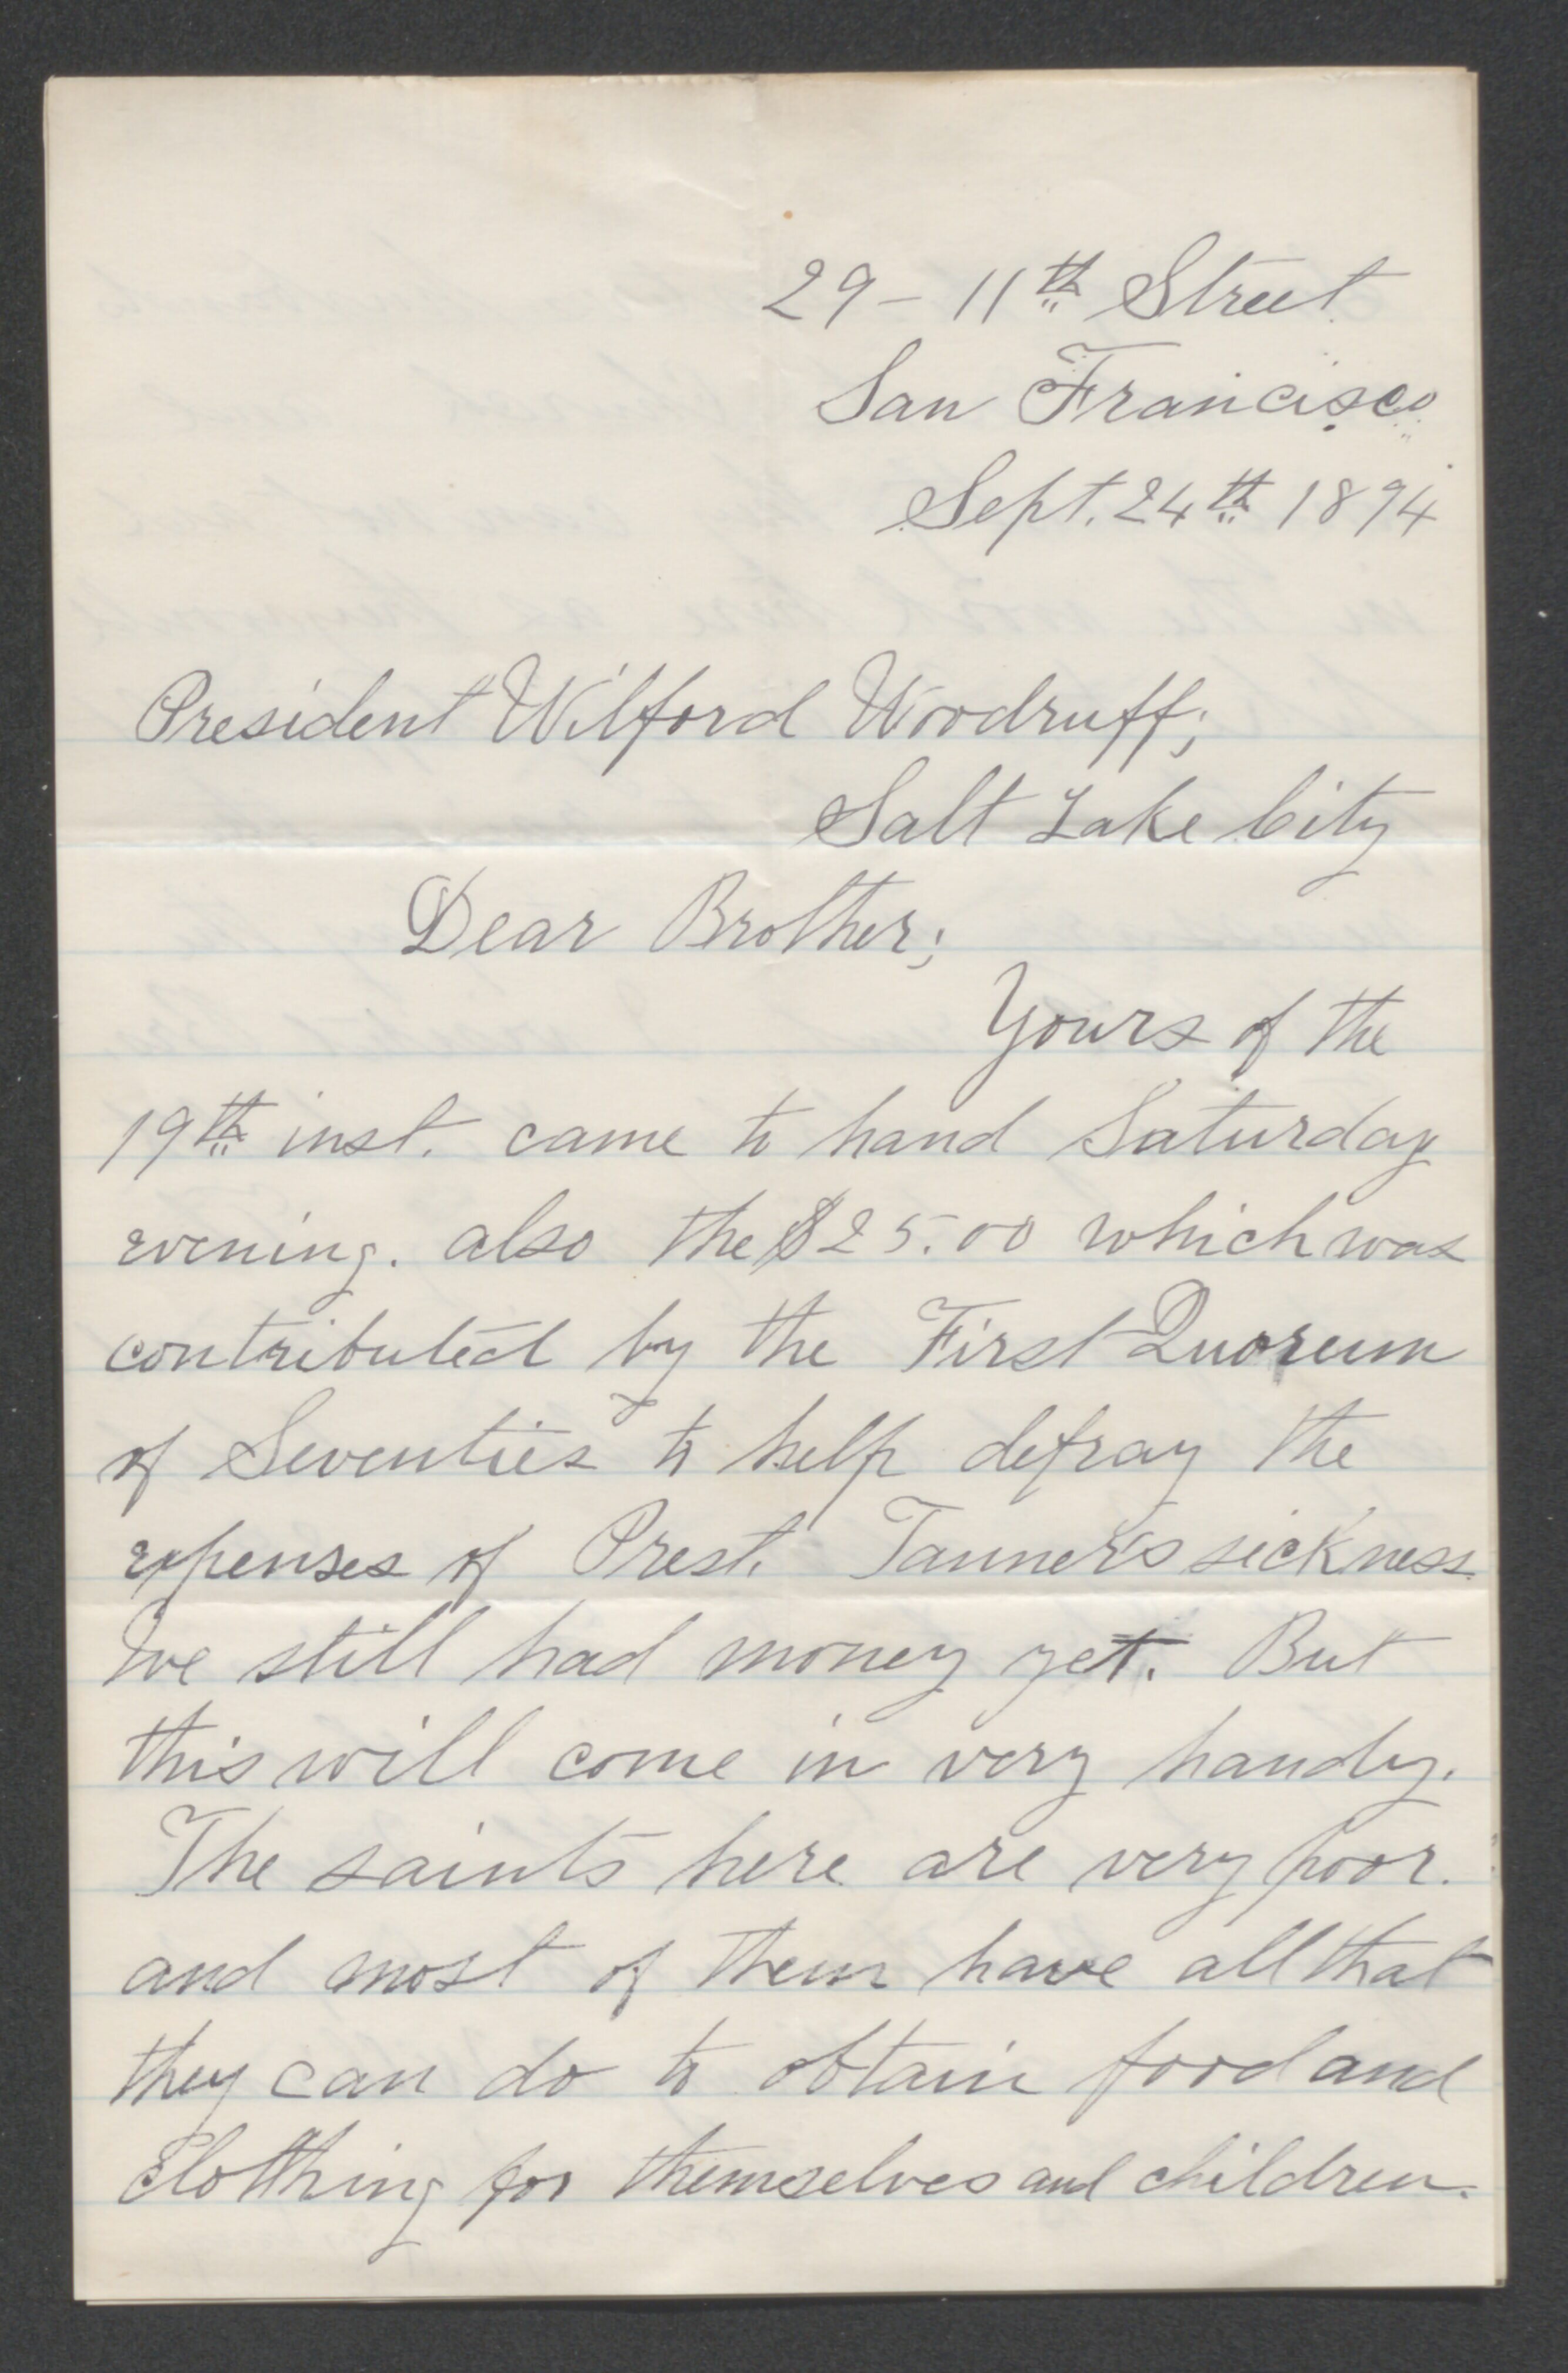 29 - 11th Street
San Francisco
Sept. 24th 1894
President Wilford Woodruff;
Salt Lake City
Dear Brother;
Yours of the
19th inst. came to hand Saturday
evening. also the $25.00 which was
contributed by the First Quoreum
of Seventies to help defray the
expenses of Prest. Tanner's sickness.
We still had money yet. But
this will come in very handy.
The saints here are very poor.
and most of them have all that
they can do to obtain food and
Clothing for themselves and children.